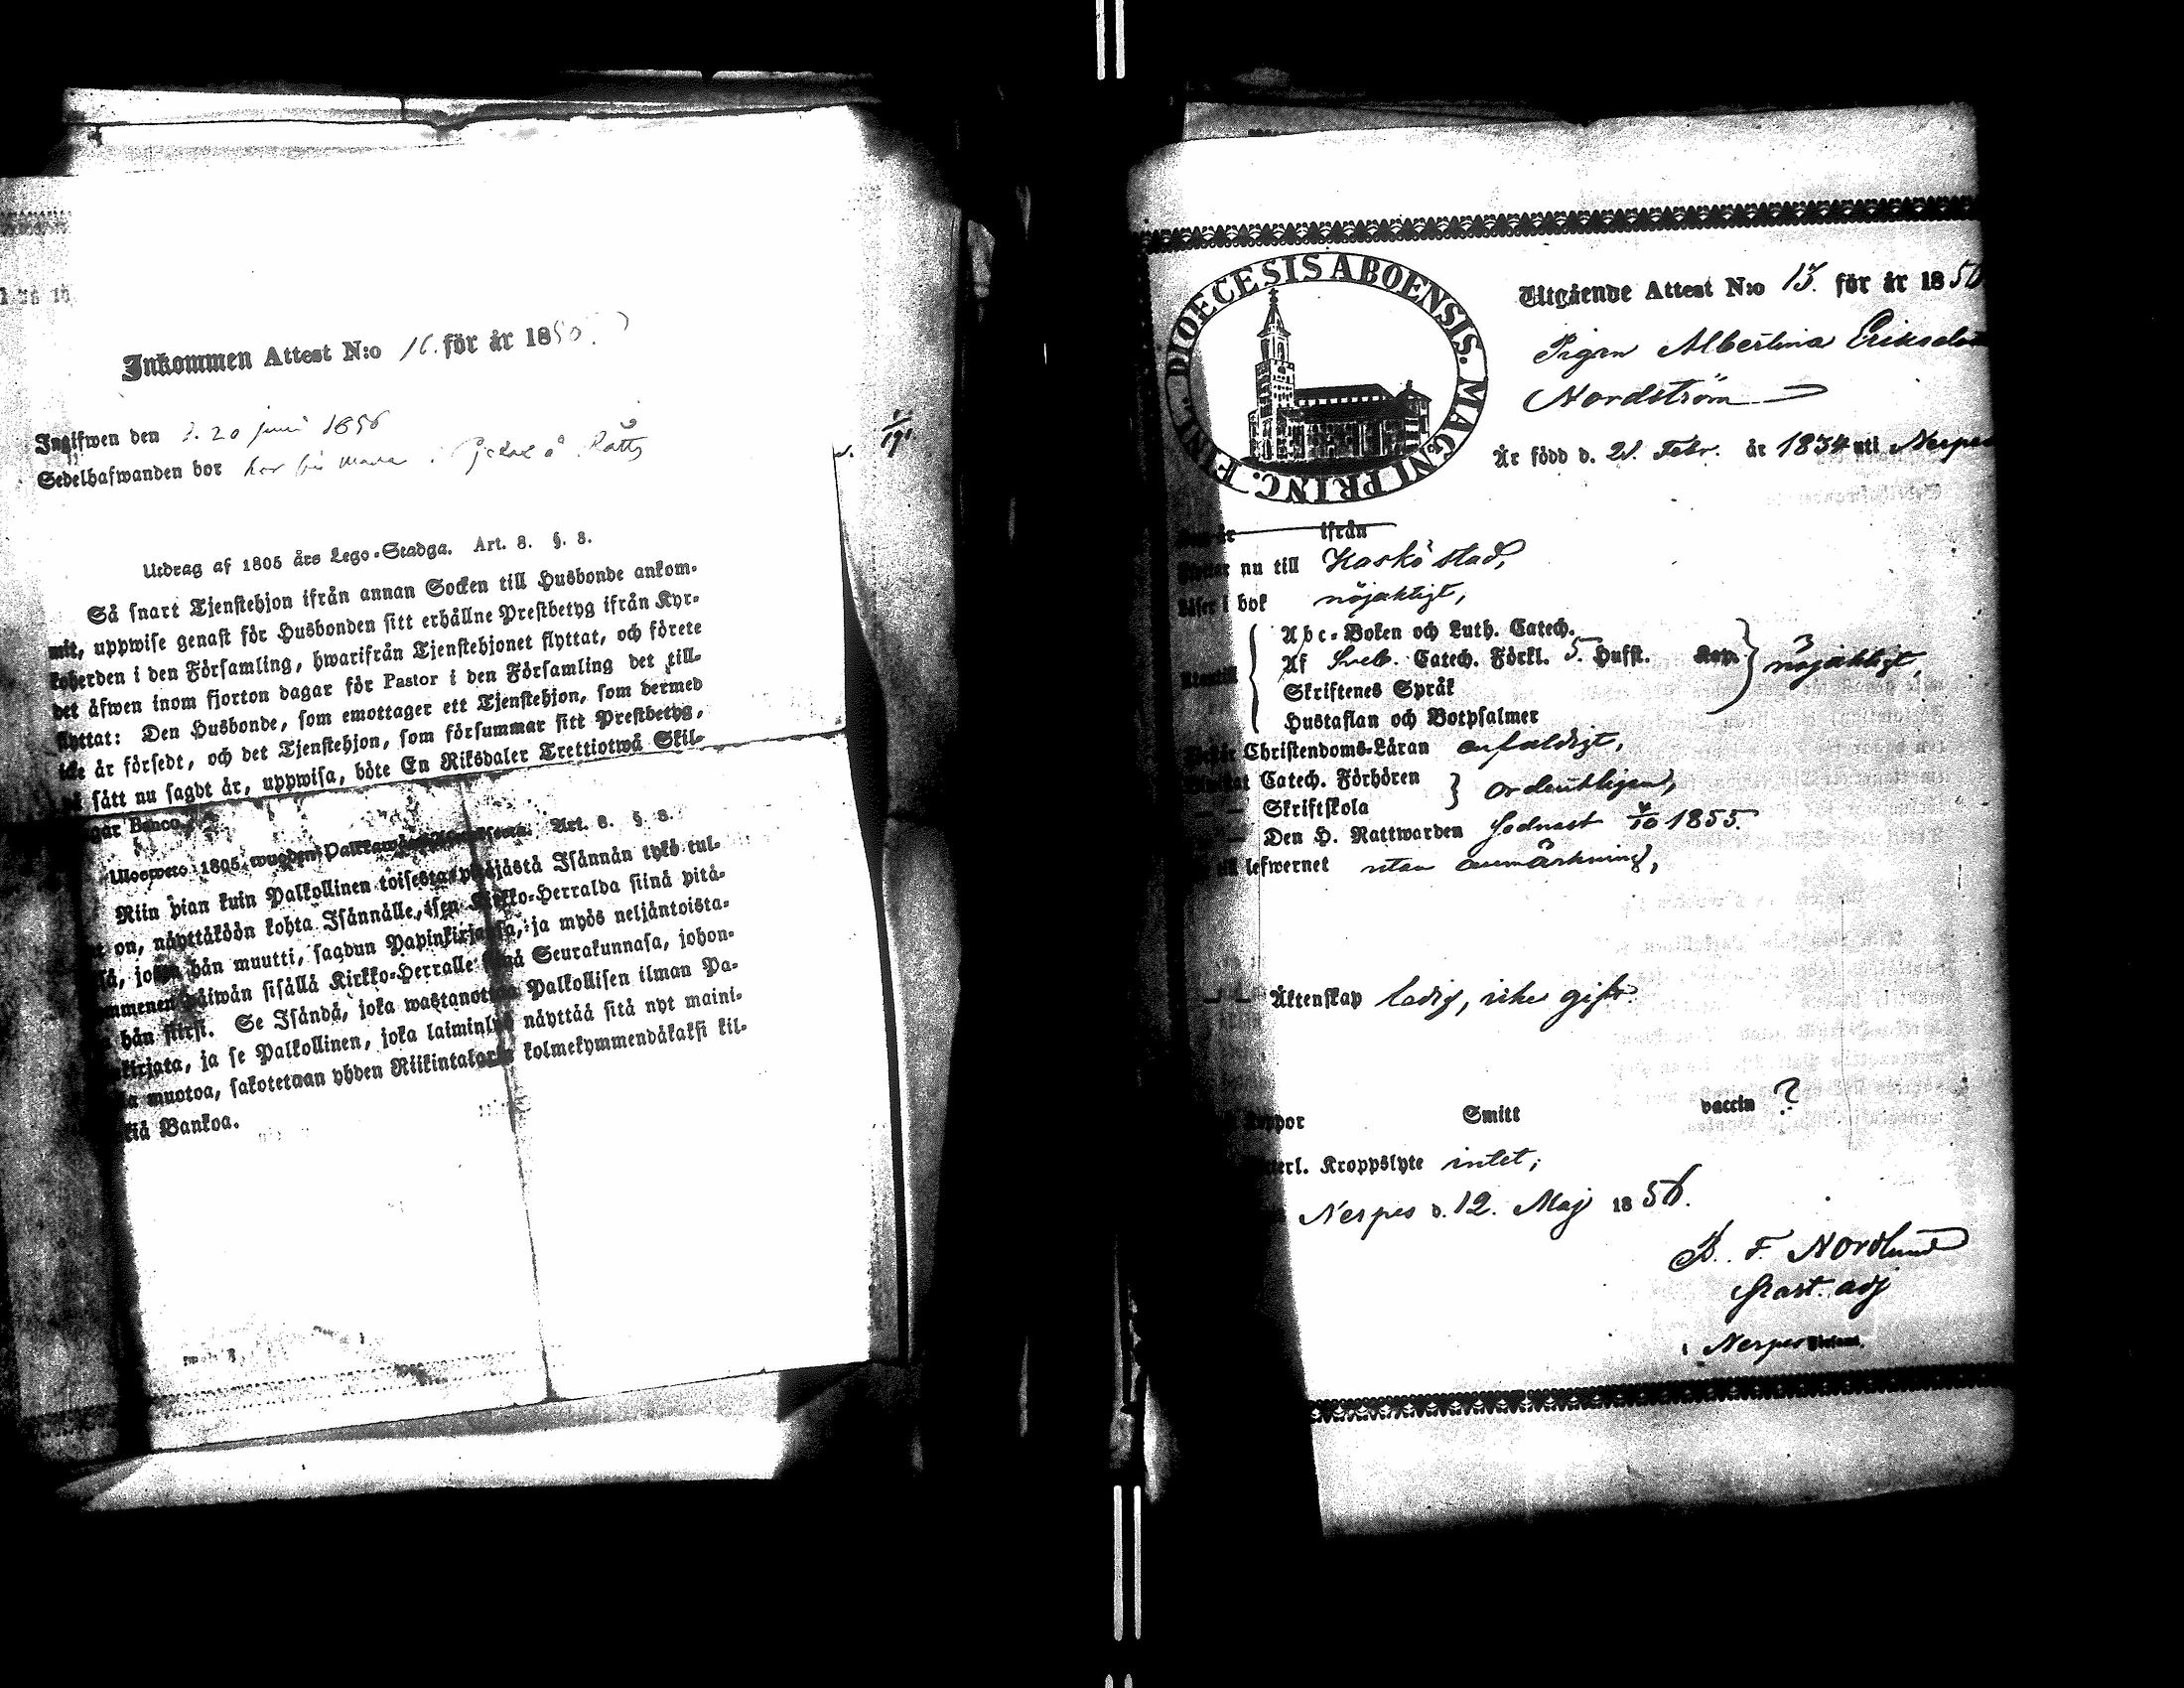 Inkommen Attest N:o 16. för år 1850.
Ingifwen den d. 20 juni 1856
Sedelhafwanden bor
Utdrag af 1805 års Lego-Stadga. Art. 8. §. 8.
Så snart Tjenstehjon ifrån annan Socken till Husbonde ankom-
mit, uppwise genast för Husbonden sitt erhållne Prestbetyg ifrån Kyr-
koherden i den Församling, hwarifrån Tjenstehjonet flyttat, och förete
det äfwen inom fjorton dagar för Pastor i den Församling det till-
flyttat: Den Husbonde, som emottager ett Tjenstehjon, som dermed
icke är försedt, och det Tjenstehjon, som försummar sitt Prestbetyg,
på sätt nu sagdt är, uppwisa, böte En Riksdaler Trettiotwå Skil-
gar Banco.
Ulosweto 1805 wuoden Art. 8. §. 8.
Niin pian kuin Palkollinen toisesta pitäjästä Isännän tykö tul-
ut on, näyttäköön kohta Isännälle, sen Kirkko-Herralda siinä pitä-
sä, josta hän muutti, saadun Papinkirjansa, ja myös neljäntoista-
mmenen päiwän sisällä Kirkko-Herralle siinä Seurakunnasa, johon-
hän siirsi. Se Isändä, joka wastanottaa Palkollisen ilman Pa-
kirjata, ja se Palkollinen, joka laiminlyö näyttää sitä nyt maini-
la muotoa, sakotetaan yhden Riikintalarin kolmekymmendäkaksi kil-
kiä Bankoa.
DIOECESIS ABOENSIS. MAGNI PRINC. FINL.
Utgående Attest N:o 13. för år 1856
Pigan Albertina Eriksdotter
Nordström
Är född d. 21. Febr. år 1834 uti Nerpes
ifrån
Flyttar nu till Kaskö stad,
Läser i bok nöjaktigt,
Abc-Boken och Luth. Catech.
Af Sveb. Catech. Förkl. 5. Hufst. Kap. nöjaktigt,
Utantill
Skriftenes Språk
Hustaflan och Botpsalmer
Christendoms-Läran enfaldigt,
Catech. Förhören
ordentligen,
— — Skriftskola
— — Den H. Nattwarden sednast 1855.
till lefwernet utan anmärkning,
Äktenskap ledig, icke gift.
Koppor Smitt vaccin ?
Kroppslyte intet;
Nerpes d. 12. Maj 1856.
B. F. Nordlund
Past. adj
i Nerpes